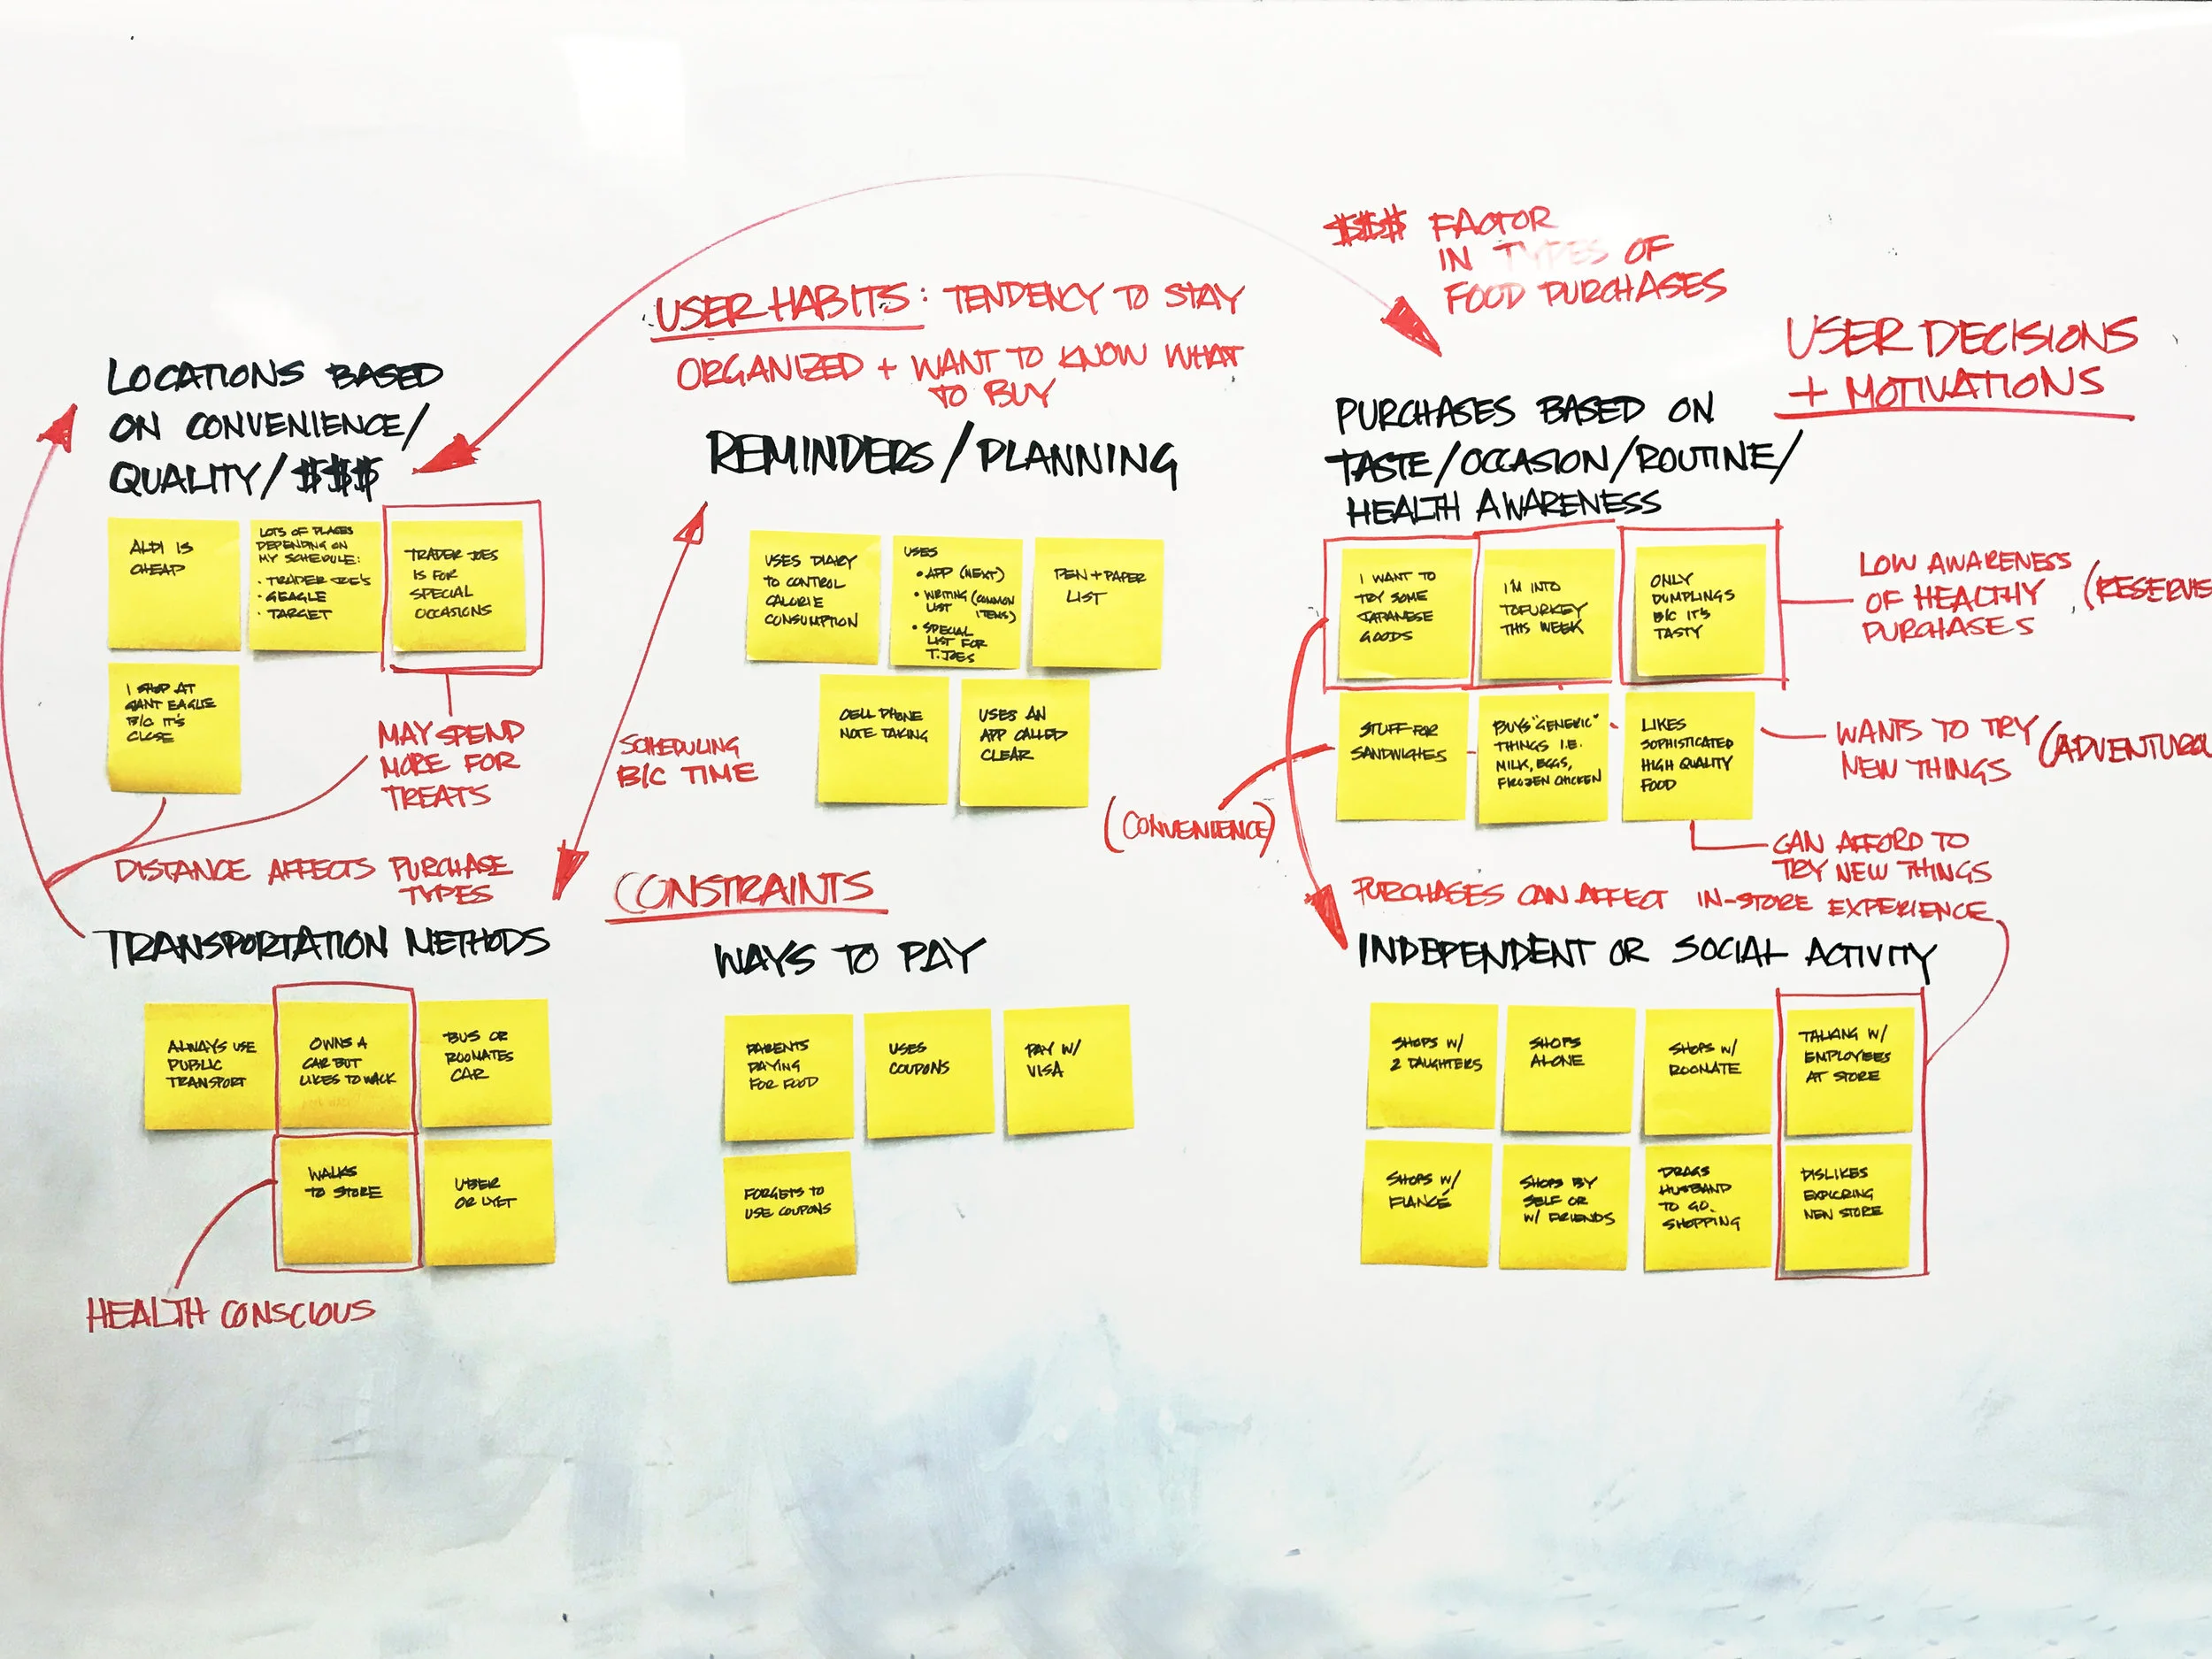 $$$ FACTOR
IN TYPES OF
FOOD PURCHASES
USER HABITS: TENDENCY TO STAY
ORGANIZED + WANT TO KNOW WHAT
TO BUY
USER DECISIONS
+ MOTIVATIONS
LOCATIONS BASED
ON CONVENIENCE/
QUALITY/$$$
ALDI IS
CHEAP
LOTS OF PLACES
DEPENDING ON
MY SCHEDULE:
• TRADER JOE'S
• GEAGLE
• TARGET
TRADER JOES
IS FOR
SPECIAL
OCCASIONS
I SHOP AT
GIANT EAGLE
B/C IT'S
CLOSE
MAY SPEND
MORE FOR
TREATS
DISTANCE AFFECTS PURCHASE
TYPES
REMINDERS/PLANNING
USES DIARY
TO CONTROL
CALORIE
CONSUMPTION
USES
• APP (NEXT)
• WRITING (COMMON
LIST ITEMS)
• SPECIAL
LIST FOR
T.JOES
PEN + PAPER
LIST
CELL PHONE
NOTE TAKING
USES AN
APP CALLED
CLEAR
SCHEDULING
B/C TIME
PURCHASES BASED ON
TASTE/OCCASION/ROUTINE/
HEALTH AWARENESS
I WANT TO
TRY SOME
JAPANESE
GOODS
I'M INTO
TOFURKEY
THIS WEEK
ONLY
DUMPLINGS
B/C IT'S
TASTY
LOW AWARENESS
OF HEALTHY
PURCHASES
(RESERVE
STUFF FOR
SANDWICHES
BUYS "GENERIC"
THINGS I.E.
MILK, EGGS,
FROZEN CHICKEN
LIKES
SOPHISTICATED
HIGH QUALITY
FOOD
WANTS TO TRY
NEW THINGS
(ADVENTUROU
(CONVENIENCE)
CAN AFFORD TO
TRY NEW THINGS
PURCHASES CAN AFFECT IN-STORE EXPERIENCE
TRANSPORTATION METHODS
ALWAYS USE
PUBLIC
TRANSPORT
OWNS A
CAR BUT
LIKES TO WALK
BUS OR
ROOMATES
CAR
WALKS
TO STORE
UBER
OR LYFT
HEALTH CONSCIOUS
CONSTRAINTS
WAYS TO PAY
PARENTS
PAYING
FOR FOOD
USES
COUPONS
PAY W/
VISA
FORGETS TO
USE COUPONS
INDEPENDENT OR SOCIAL ACTIVITY
SHOPS W/
2 DAUGHTERS
SHOPS
ALONE
SHOPS W/
ROOMATE
TALKING W/
EMPLOYEES
AT STORE
SHOPS W/
FIANCÉ
SHOPS BY
SELF OR
W/ FRIENDS
DRAGS
HUSBAND
TO GO
SHOPPING
DISLIKES
EXPLORING
NEW STORE